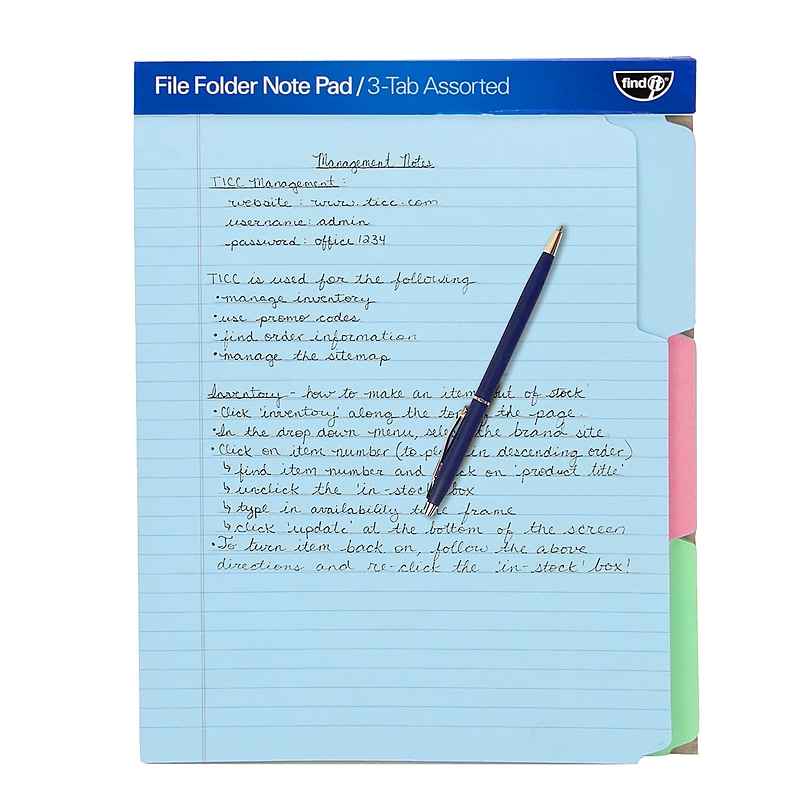 File Folder Note Pad / 3-Tab Assorted
find it®
Management Notes
TICC Management:
website: www.ticc.com
username: admin
password: office1234
TICC is used for the following
•manage inventory
•use promo codes
•find order information
•manage the sitemap
Inventory - how to make an item out of stock
•Click 'inventory' along the top the page.
•In the drop down menu, the brand site.
•Click on item number (to in descending order)
↳find item number and on 'product title'
↳unclick the 'in-stock' box
↳type in availability frame
↳click 'update' at the bottom of the screen
•To turn item back on, follow the above
directions and re-click the 'in-stock' box!